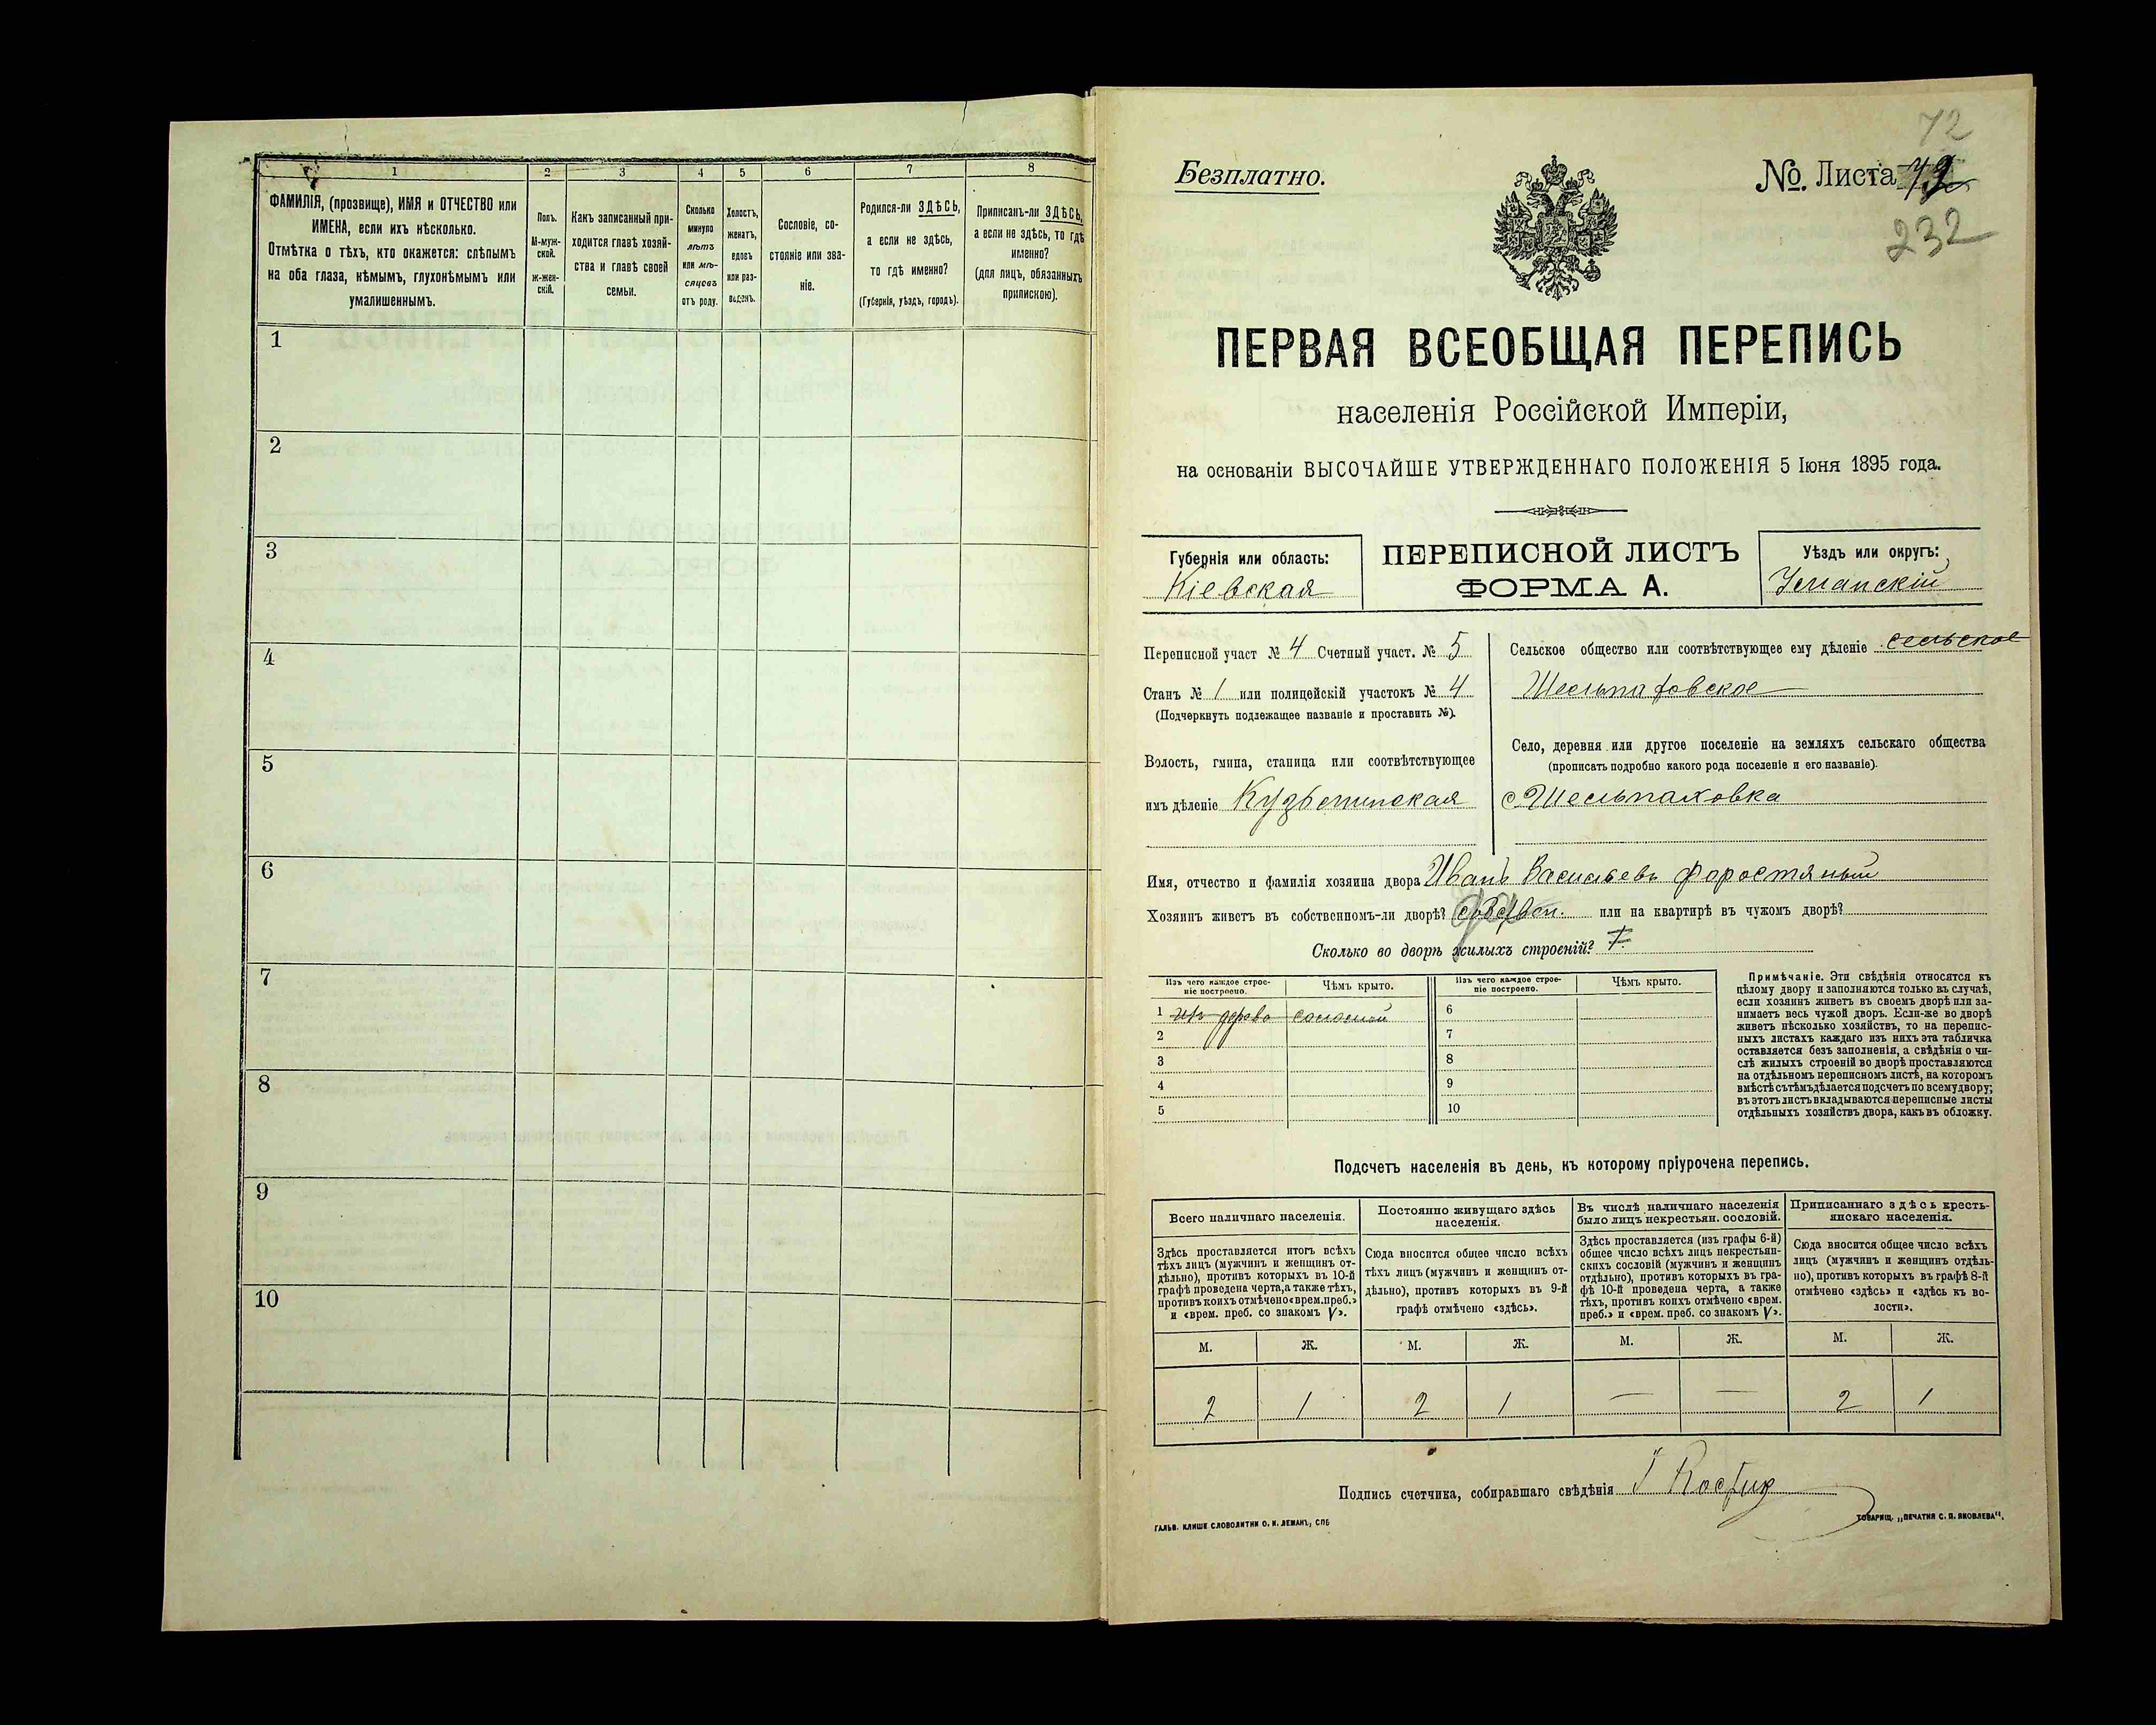 1 2 3 4 5 6 7 8
ФАМИЛІЯ, (прозвище), ИМЯ и ОТЧЕСТВО или
ИМЕНА, если ихъ нѣсколько.
Отмѣтка о тѣхъ, кто окажется: слѣпымъ
на оба глаза, нѣмымъ, глухонѣмымъ или
умалишеннымъ.
Полъ.
М-муж-
ской.
ж-жен-
скій.
Какъ записанный при-
ходится главѣ хозяй-
ства и главѣ своей
семьи.
Сколько
минуло
лѣтъ
или мѣ-
сяцевъ
отъ роду.
Холостъ,
женатъ,
вдовъ
или раз-
веденъ.
Сословіе, со-
стояніе или зва-
ніе.
Родился-ли ЗДѢСЬ,
а если не здѣсь,
то гдѣ именно?
(Губернія, уѣздъ, городъ).
Приписанъ-ли ЗДѢСЬ,
а если не здѣсь, то гдѣ
именно?
(для лицъ, обязанныхъ
припискою).
1
2
3
4
5
6
7
8
9
10
72
Безплатно.
№. Листа
232
ПЕРВАЯ ВСЕОБЩАЯ ПЕРЕПИСЬ
населенія Россійской Имперіи,
на основаніи ВЫСОЧАЙШЕ УТВЕРЖДЕННАГО ПОЛОЖЕНІЯ 5 Іюня 1895 года.
Губернія или область:
Кіевская
ПЕРЕПИСНОЙ ЛИСТЪ
ФОРМА А.
Уѣздъ или округъ:
Уманскій
Переписной участ № 4 Счетный участ. № 5
Станъ № 1 или полицейскій участокъ № 4
(Подчеркнуть подлежащее названіе и проставить №).
Волость, гмина, станица или соотвѣтствующее
имъ дѣленіе Кузьминская
Сельское общество или соотвѣтствующее ему дѣленіе сельское
Шельпаховское
Село, деревня или другое поселеніе на земляхъ сельскаго общества
(прописать подробно какого рода поселеніе и его названіе).
с. Шельпаховка
Имя, отчество и фамилія хозяина двора Иванъ Васильевъ Форостяный
Хозяинъ живетъ въ собственномъ-ли дворѣ? собствен. или на квартирѣ въ чужомъ дворѣ?
Сколько во дворѣ жилыхъ строеній?
Изъ чего каждое строе-
ніе построено.
Чѣмъ крыто.
Изъ чего каждое строе-
ніе построено.
Чѣмъ крыто.
1 изъ дерева соломой 6
2 7
3 8
4 9
5 10
Примѣчаніе. Эти свѣдѣнія относятся къ
цѣлому двору и заполняются только въ случаѣ,
если хозяинъ живетъ въ своемъ дворѣ или за-
нимаетъ весь чужой дворъ. Если-же во дворѣ
живетъ нѣсколько хозяйствъ, то на перепис-
ныхъ листахъ каждаго изъ нихъ эта табличка
оставляется безъ заполненія, а свѣдѣнія о чи-
слѣ жилыхъ строеній во дворѣ проставляются
на отдѣльномъ переписномъ листѣ, на которомъ
вмѣстѣ съ тѣмъ дѣлается подсчетъ по всему двору;
въ этотъ листъ вкладываются переписные листы
отдѣльныхъ хозяйствъ двора, какъ въ обложку.
Подсчетъ населенія въ день, къ которому пріурочена перепись.
Всего наличнаго населенія.
Постоянно живущаго здѣсь
населенія.
Въ числѣ наличнаго населенія
было лицъ некрестьян. сословій.
Приписаннаго здѣсь кресть-
янскаго населенія.
Здѣсь проставляется итогъ всѣхъ
тѣхъ лицъ (мужчинъ и женщинъ от-
дѣльно), противъ которыхъ въ 10-й
графѣ проведена черта, а также тѣхъ,
противъ коихъ отмѣчено «врем. преб.»
и «врем. преб. со знакомъ V».
Сюда вносится общее число всѣхъ
тѣхъ лицъ (мужчинъ и женщинъ от-
дѣльно), противъ которыхъ въ 9-й
графѣ отмѣчено «здѣсь».
Здѣсь проставляется (изъ графы 6-й)
общее число всѣхъ лицъ некрестьян-
скихъ сословій (мужчинъ и женщинъ
отдѣльно), противъ которыхъ въ гра-
фѣ 10-й проведена черта, а также
тѣхъ, противъ коихъ отмѣчено «врем.
преб.» и «врем. преб. со знакомъ V».
Сюда вносится общее число всѣхъ
лицъ (мужчинъ и женщинъ отдѣль-
но), противъ которыхъ въ графѣ 8-й
отмѣчено «здѣсь» и «здѣсь къ во-
лости».
М. Ж. М. Ж. М. Ж. М. Ж.
2 1 2 1 — — 2 1
Подпись счетчика, собиравшаго свѣдѣнія
ГАЛЬВ. КЛИШЕ СЛОВОЛИТНИ О. И. ЛЕМАНЪ, СПБ
ТОВАРИЩ. „ПЕЧАТНЯ С. П. ЯКОВЛЕВА".